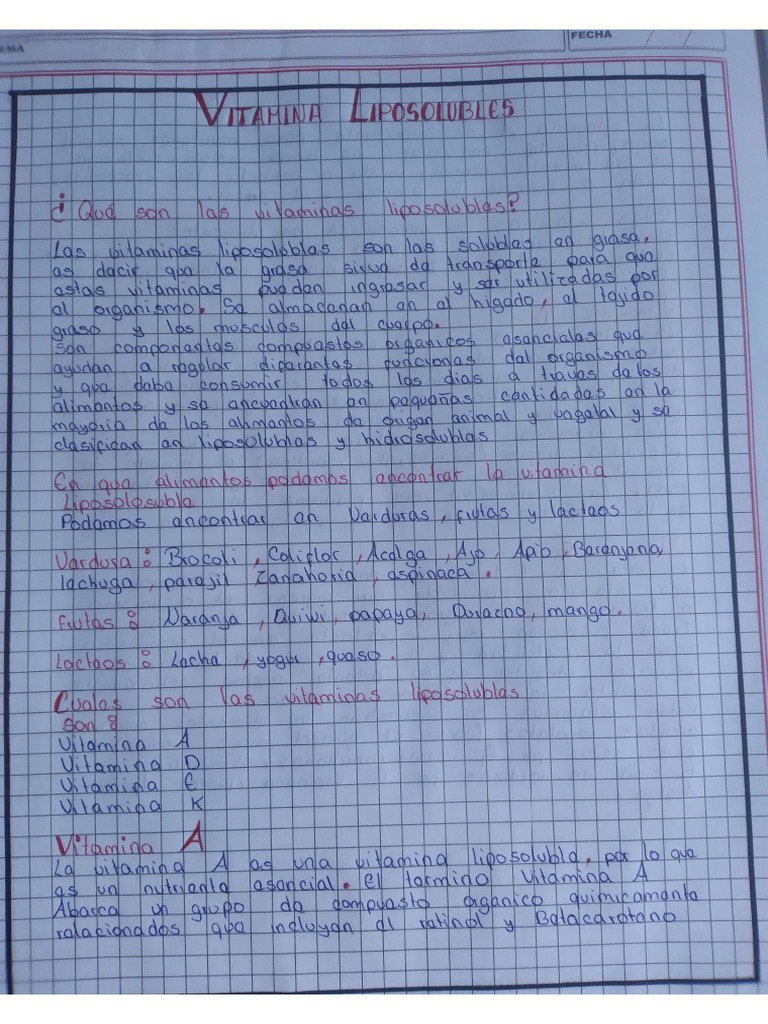 EMA
FECHA
VITAMINA LIPOSOLUBLES
¿ Qué son las vitaminas liposolubles?
Las vitaminas liposolubles son las solubles en grasa,
es decir que la grasa sirve de transporte para que
estas vitaminas puedan ingresar y ser utilizadas por
el organismo. Se almacenan en el higado, el tejido
graso y los musculos del cuerpo.
Son componentes compuestos organicos esenciales que
ayudan a regular diferentes funciones del organismo
y que debe consumir todos los dias a traves de los
alimentos y se encuentran en pequeñas cantidades en la
mayoria de los alimentos de origen animal y vegetal y se
clasifican en liposolubles y hidrosolubles
En que alimentos podemos encontrar la vitamina
Liposolosuble
Podemos encontrar en Verduras, frutas y lacteos
Verdura : Brocoli , Coliflor , Acelga , Ajo , Apio , Berenjena,
lechuga , perejil Zanahoria , espinaca .
Frutas : Naranja , Quiwi , papaya, Durazno, mango.
Lacteos : Leche , yogur , queso .
Cuales son las vitaminas liposolubles
Son :
Vitamina A
Vitamina D
Vitamina E
Vitamina K
Vitamina A
La vitamina A es una vitamina liposoluble, por lo que
es un nutriente esencial. El termino Vitamina A
Abarca un grupo de compuesto organico quimicamente
relacionados que incluyen el retinol y Betacaroteno